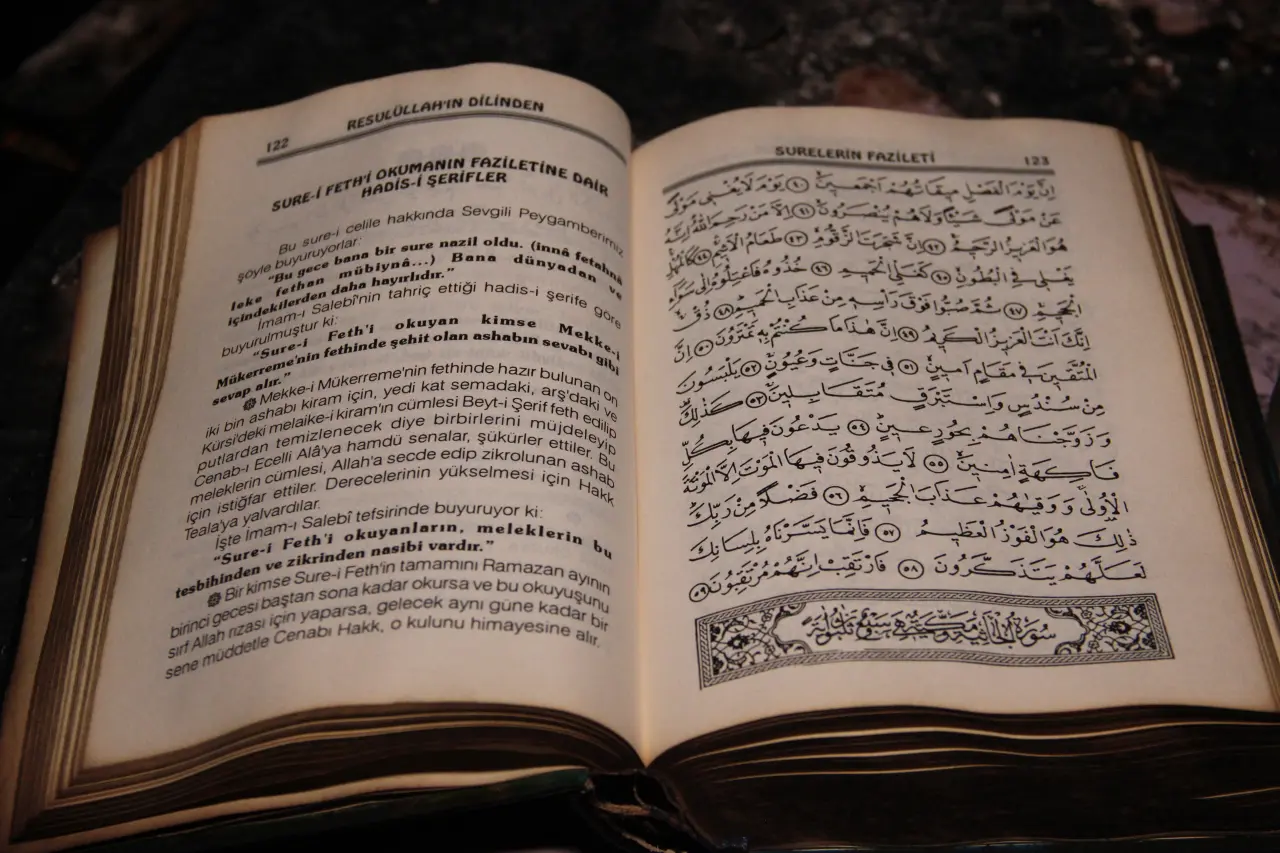 122
RESULÜLLAH'IN DİLİNDEN
SURE-İ FETH'İ OKUMANIN FAZİLETİNE DAİR
HADİS-İ ŞERİFLER
Bu sure-i celile hakkında Sevgili Peygamberimiz
şöyle buyuruyorlar:
"Bu gece bana bir sure nazil oldu. (innâ fetahnâ
leke fethan mübiynâ...) Bana dünyadan ve
içindekilerden daha hayırlıdır."
İmam-ı Salebî'nin tahriç ettiği hadis-i şerife göre
buyurulmuştur ki:
"Sure-i Feth'i okuyan kimse Mekke-i
Mükerreme'nin fethinde şehit olan ashabın sevabı gibi
sevap alır."
Mekke-i Mükerreme'nin fethinde hazır bulunan on
iki bin ashabı kiram için, yedi kat semadaki, arş'daki ve
Kürsi'deki melaike-i kiram'ın cümlesi Beyt-i Şerif feth edilip
putlardan temizlenecek diye birbirlerini müjdeleyip
Cenab-ı Ecelli Alâ'ya hamdü senalar, şükürler ettiler. Bu
meleklerin cümlesi, Allah'a secde edip zikrolunan ashab
için istiğfar ettiler. Derecelerinin yükselmesi için Hakk
Teala'ya yalvardılar.
İşte İmam-ı Salebî tefsirinde buyuruyor ki:
"Sure-i Feth'i okuyanların, meleklerin bu
tesbihinden ve zikrinden nasibi vardır."
Bir kimse Sure-i Feth'in tamamını Ramazan ayının
birinci gecesi baştan sona kadar okursa ve bu okuyuşunu
sırf Allah rızası için yaparsa, gelecek aynı güne kadar bir
sene müddetle Cenabı Hakk, o kulunu himayesine alır.
SURELERİN FAZİLETİ
123
اِنَّ يَوْمَ الْفَصْلِ مِيقَاتُهُمْ اَجْمَعِينَ ﴿٤٠﴾ يَوْمَ لَا يُغْنِى مَوْلًى
عَنْ مَوْلًى شَيْئًا وَلَا هُمْ يُنْصَرُونَ ﴿٤١﴾ اِلَّا مَنْ رَحِمَ اللّٰهُ اِنَّهُ
هُوَ الْعَزِيزُ الرَّحِيمُ ﴿٤٢﴾ اِنَّ شَجَرَتَ الزَّقُّومِ ﴿٤٣﴾ طَعَامُ الْاَثِيمِ ﴿٤٤﴾ كَالْمُهْلِ
يَغْلِى فِى الْبُطُونِ ﴿٤٥﴾ كَغَلْىِ الْحَمِيمِ ﴿٤٦﴾ خُذُوهُ فَاعْتِلُوهُ اِلٰى سَوَاءِ
الْجَحِيمِ ﴿٤٧﴾ ثُمَّ صُبُّوا فَوْقَ رَاْسِهِ مِنْ عَذَابِ الْحَمِيمِ ﴿٤٨﴾ ذُقْ
اِنَّكَ اَنْتَ الْعَزِيزُ الْكَرِيمُ ﴿٤٩﴾ اِنَّ هٰذَا مَا كُنْتُمْ بِهِ تَمْتَرُونَ ﴿٥٠﴾ اِنَّ
الْمُتَّقِينَ فِى مَقَامٍ اَمِينٍ ﴿٥١﴾ فِى جَنَّاتٍ وَعُيُونٍ ﴿٥٢﴾ يَلْبَسُونَ
مِنْ سُنْدُسٍ وَاِسْتَبْرَقٍ مُتَقَابِلِينَ ﴿٥٣﴾ كَذٰلِكَ
وَزَوَّجْنَاهُمْ بِحُورٍ عِينٍ ﴿٥٤﴾ يَدْعُونَ فِيهَا بِكُلِّ
فَاكِهَةٍ اٰمِنِينَ ﴿٥٥﴾ لَا يَذُوقُونَ فِيهَا الْمَوْتَ اِلَّا الْمَوْتَةَ
الْاُولٰى وَوَقٰيهُمْ عَذَابَ الْجَحِيمِ ﴿٥٦﴾ فَضْلًا مِنْ رَبِّكَ
ذٰلِكَ هُوَ الْفَوْزُ الْعَظِيمُ ﴿٥٧﴾ فَاِنَّمَا يَسَّرْنَاهُ بِلِسَانِكَ
لَعَلَّهُمْ يَتَذَكَّرُونَ ﴿٥٨﴾ فَارْتَقِبْ اِنَّهُمْ مُرْتَقِبُونَ ﴿٥٩﴾
سُورَةُ الْجَاثِيَةِ مَكِّيَّةٌ وَهِىَ سَبْعٌ وَثَلٰثُونَ اٰيَةً